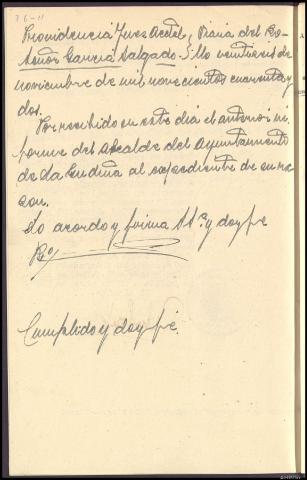 Providencia Juez Acctal, Viana del Bo-
Señor García Salgado. Sllo veintiseis de
noviembre de mil novecientos cuarenta y
dos.
Por recibido en este dia el anterior in-
forme del Alcalde del Ayuntamiento
de La Gudiña al expediente de su ra-
zon.
Lo acordo y firma S.Sª y doy fe
Cumplido y doy fe.